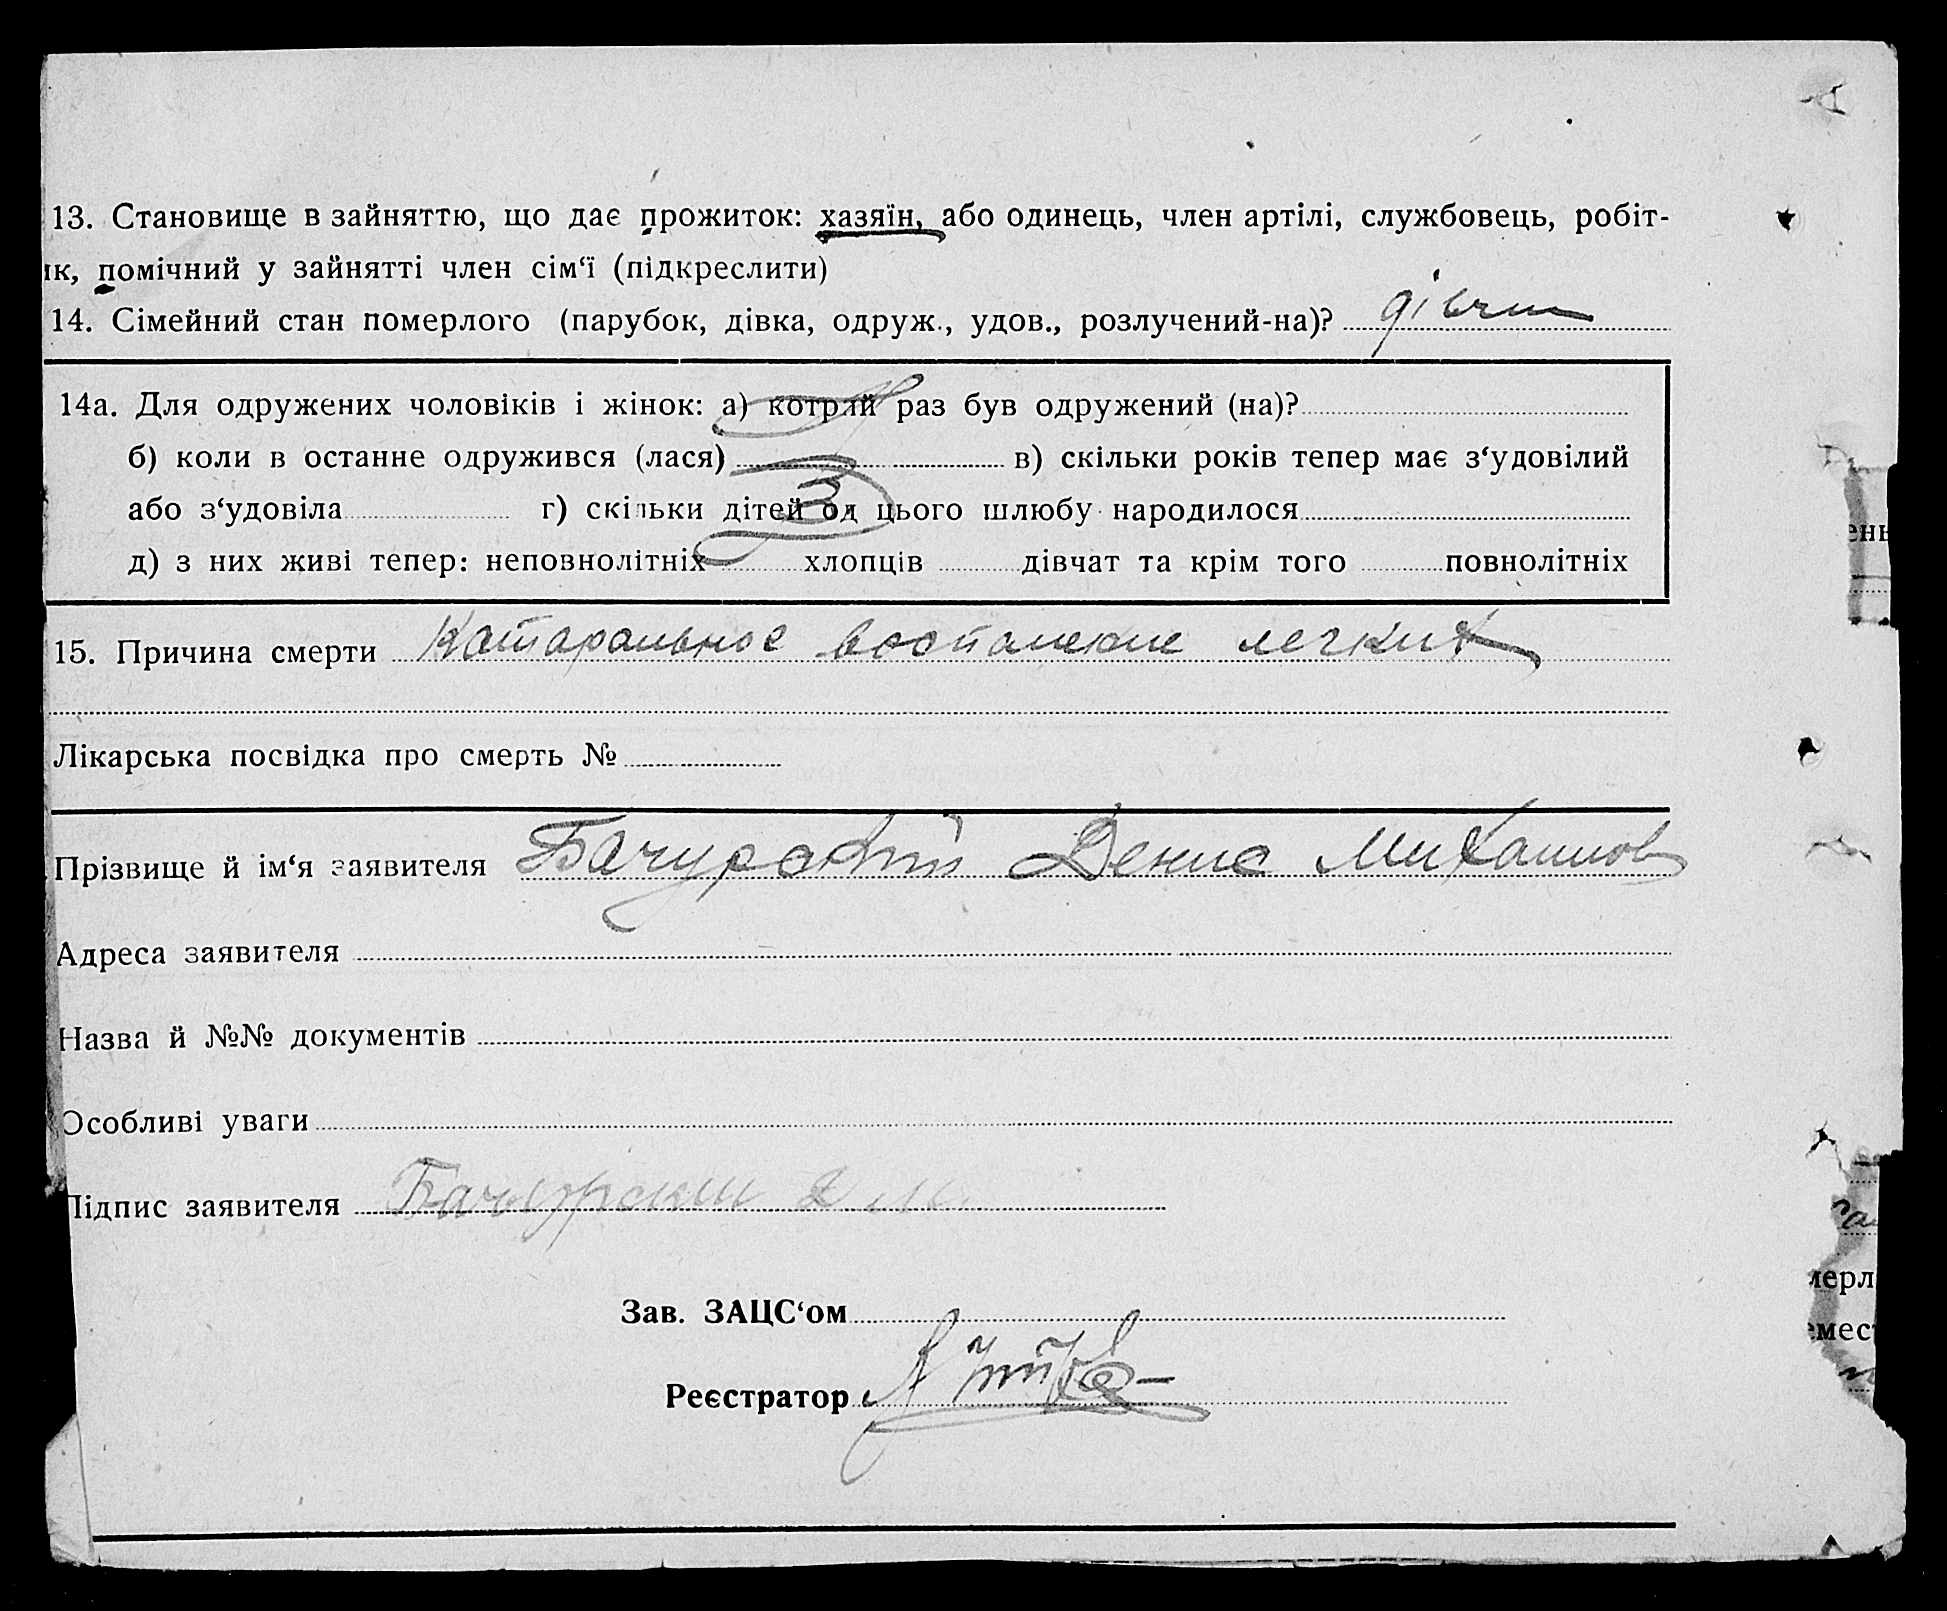 13. Становище в зайняттю, що дає прожиток: хазяїн, або одинець, член артілі, службовець, робіт-
ік, помічний у зайнятті член сім‘ї (підкреслити)
14. Сімейний стан померлого (парубок, дівка, одруж., удов., розлучений-на)?
14а. Для одружених чоловіків і жінок: а) котрий раз був одружений (на)?
б) коли в останне одружився (лася) в) скільки років тепер має з‘удовілий
або з‘удовіла г) скільки дітей од цього шлюбу народилося
д) з них живі тепер: неповнолітніх хлопців дівчат та крім того повнолітніх
15. Причина смерти Катаральное воспаление легких
Лікарська посвідка про смерть №
Прізвище й ім‘я заявителя Бачурский Денис Михаилов
Адреса заявителя
Назва й №№ документів
Особливі уваги
Підпис заявителя Бачурский Д М
Зав. ЗАЦС‘ом
Реєстратор